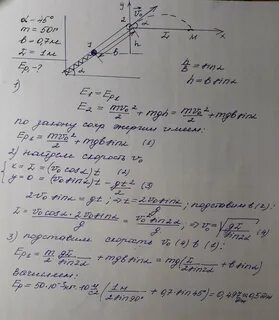 α = 45°
m = 50г
b = 0,7м
L = 1м
Ep₁ - ?
y
v₀
2
1
b
h
α
L
M
x
h/b = sinα
h = b sinα
1)
E₁ = E₂
E₂ = mv₀²/2 + mgh = mv₀²/2 + mgb sinα
по закону сохр энергии имеем:
Ep₁ = mv₀²/2 + mgb sinα (1)
2) найдем скорость v₀
{ x = L = (v₀ cosα)t (2)
{ y = 0 = (v₀ sinα)t - gt²/2 (3)
2v₀ sinα = gt; → t = 2v₀ sinα/g; подставим в (2):
L = v₀ cosα · 2v₀ sinα/g = v₀² sin2α/g ⇒ v₀ = √(gL/sin2α) (4)
3) подставим скорость v₀ (4) в (1):
Ep₁ = m/2 gL/sin2α + mgb sinα = mg(L/2sin2α + b sinα)
Вычислим:
Ep = 50·10⁻³кг·10 м/с² (1м/2sin90° + 0,7·sin45°) = 0,497 ≈ 0,5